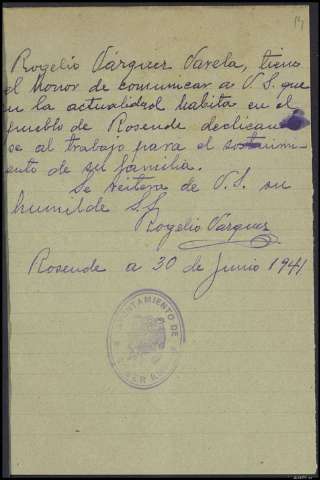 Rogelio Vázquez Varela, tiene
el honor de comunicar a V.S. que
en la actualidad habita en el
pueblo de Rosende dedican
se al trabajo para el sostenimi-
ento de su familia.
Se reitera de V.S. su
humilde S.S.
Rogelio Vázquez
Rosende a 30 de Junio 1941
AYUNTAMIENTO DE